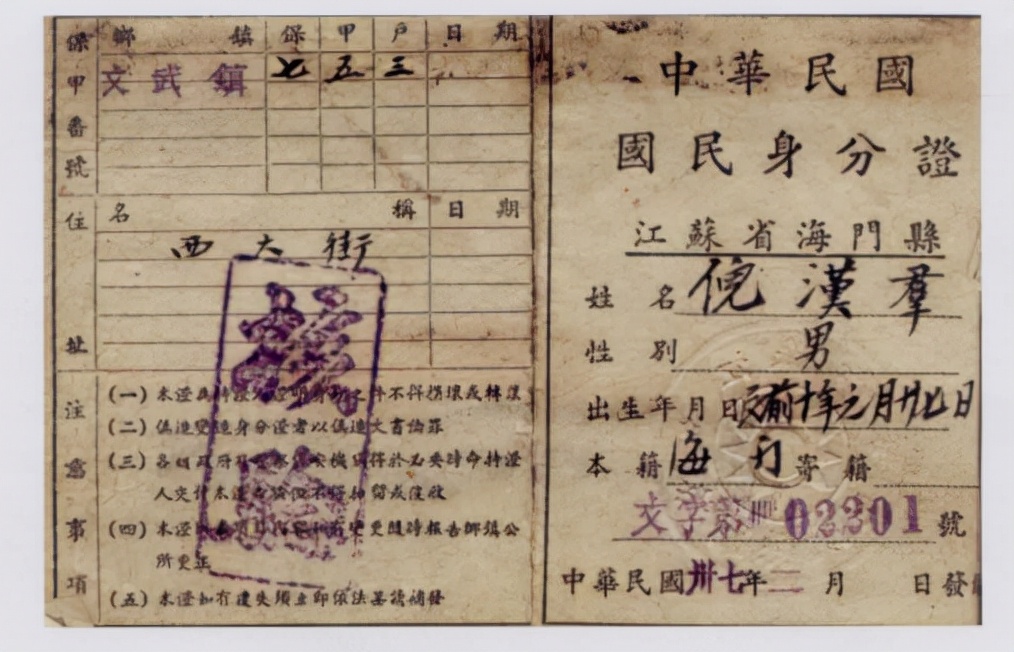 中華民國
國民身分證
江蘇省海門縣
姓名 倪漢羣
性別 男
出生年月日 民前十年元月廿七日
本籍 海門 寄籍
文字第 02201 號
中華民國卅七年二月 日發
保甲番號
鄉鎮 保 甲 戶 日期
文武鎮 七 五 三
住址
名稱 日期
西大街
注意事項
(一) 本證為持證人證明身份之件不得損壞或轉讓
(二) 偽造變造身分證者以偽造文書論罪
(三) 各級政府及警察 機關得於必要時命持證
人交付本證查驗但不得扣留或沒收
(四) 本證 項 內容 有變更隨時報告鄉鎮公
所更正
(五) 本證如有遺失須立即依法聲請補發